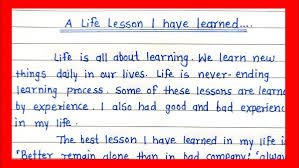 A Life Lesson I have learned....
Life is all about learning. We learn new
things daily in our lives. Life is never-ending
learning process. Some of these lessons are learne
by experience. I also had good and bad experienc
in my life.
The best lesson I have learned in my life is
"Better remain alone than in bad company;"